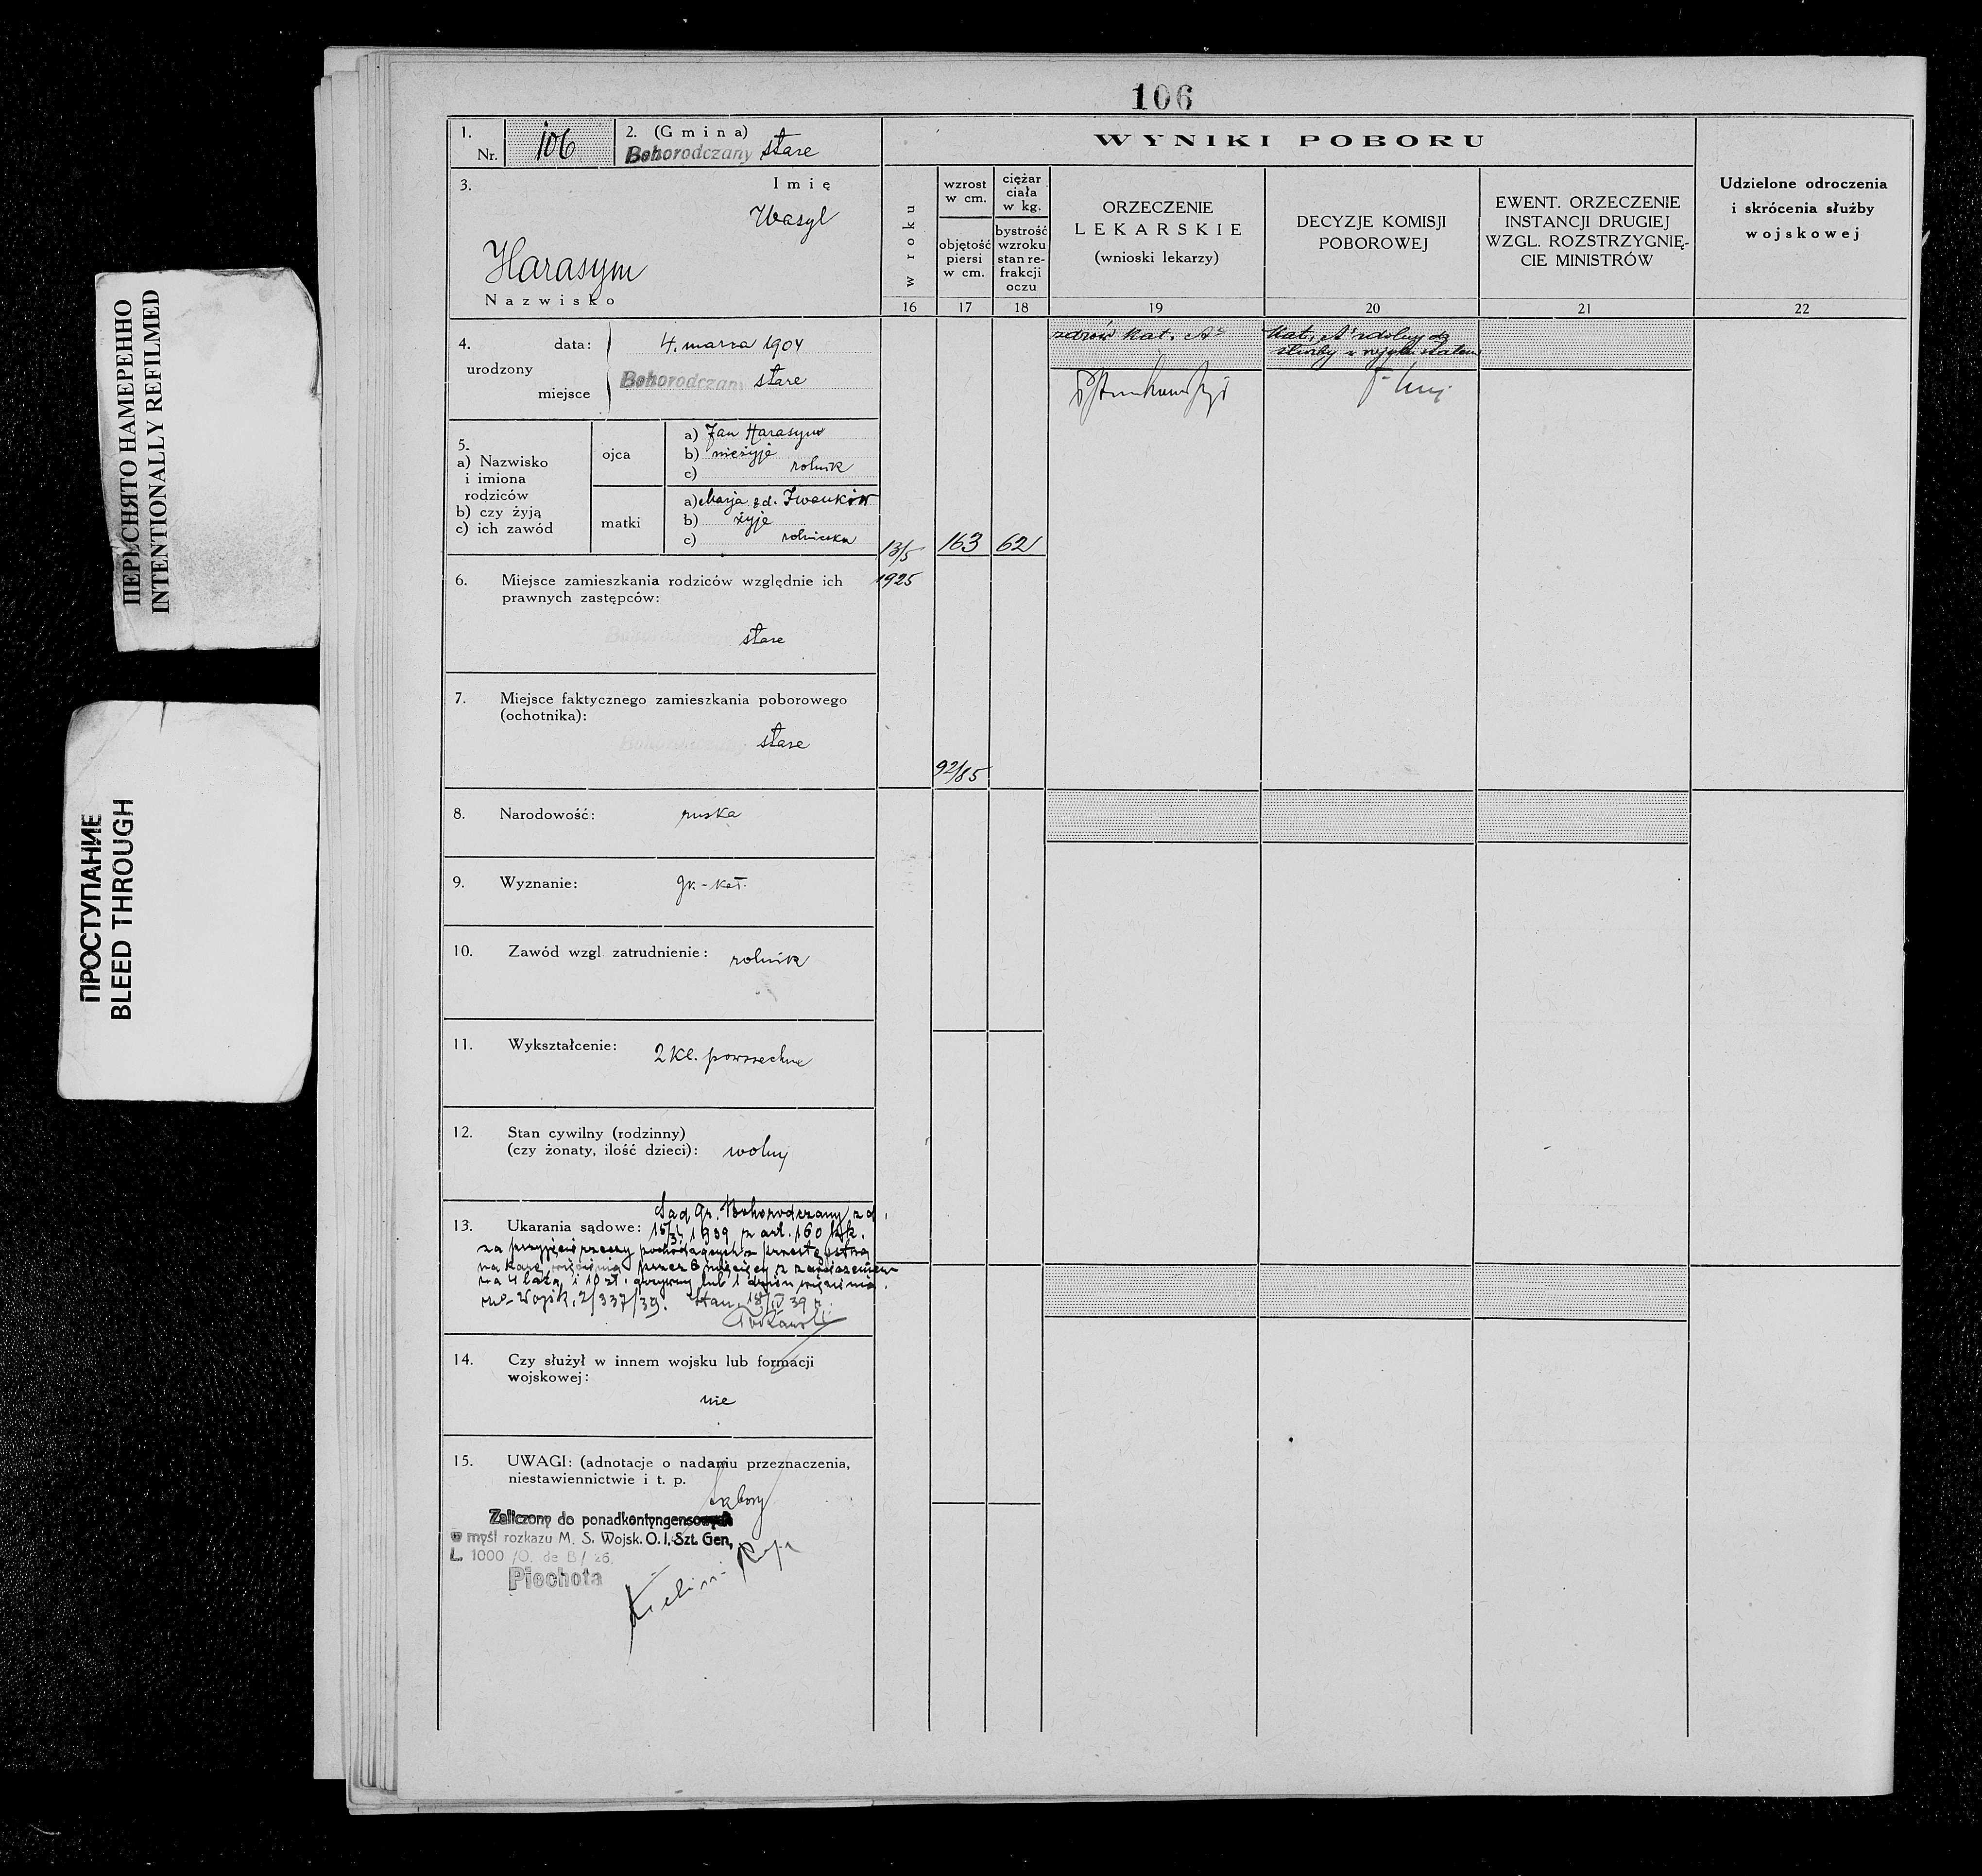 ПЕРЕСНЯТО НАМЕРЕННО
INTENTIONALLY REFILMED
ПРОСТУПАНИЕ
BLEED THROUGH
106
1.
Nr. 106
2. (Gmina)
Bohorodczany stare
3. Imię
Wasyl
Harasym
Nazwisko
4. urodzony
data: 4. marca 1904
miejsce Bohorodczany stare
5.
a) Nazwisko
i imiona
rodziców
b) czy żyją
c) ich zawód
ojca
a) Jan Harasym
b) nieżyje
c) rolnik
matki
a) Marja z d. Iwanków
b) żyje
c) rolniczka
6. Miejsce zamieszkania rodziców względnie ich
prawnych zastępców:
Bohorodczany stare
7. Miejsce faktycznego zamieszkania poborowego
(ochotnika):
Bohorodczany stare
8. Narodowość: ruska
9. Wyznanie: gr.-kat.
10. Zawód wzgl. zatrudnienie: rolnik
11. Wykształcenie: 2 kl. powszechne
12. Stan cywilny (rodzinny)
(czy żonaty, ilość dzieci): wolny
Sąd Gr. Bohorodczany z d.
13. Ukarania sądowe: 1939 z art. 160 kk.
za przyjęcie rzeczy pochodzących z przestępstwa
na karę więzienia przez 6 miesięcy z zawieszeniem
na 4 lata, i 10 zł. grzywny lub 1 dzień więzienia.
2/337/39. 39 r.
14. Czy służył w innem wojsku lub formacji
wojskowej:
nie
15. UWAGI: (adnotacje o nadaniu przeznaczenia,
niestawiennictwie i t. p.
Zaliczony do ponadkontyngensowych
w myśl rozkazu M. S. Wojsk. O. I. Szt. Gen,
L. 1000 /O. de B/ 26.
Piechota
WYNIKI POBORU
w roku
16
wzrost
w cm.
objętość
piersi
w cm.
17
ciężar
ciała
w kg.
bystrość
wzroku
stan re-
frakcji
oczu
18
ORZECZENIE
LEKARSKIE
(wnioski lekarzy)
19
DECYZJE KOMISJI
POBOROWEJ
20
EWENT. ORZECZENIE
INSTANCJI DRUGIEJ
WZGL. ROZSTRZYGNIĘ-
CIE MINISTRÓW
21
Udzielone odroczenia
i skrócenia służby
wojskowej
22
13/5
1925
163
62
92/85
zdrów kat. A
Kat. A zdolny do
służby w wojsku stałem